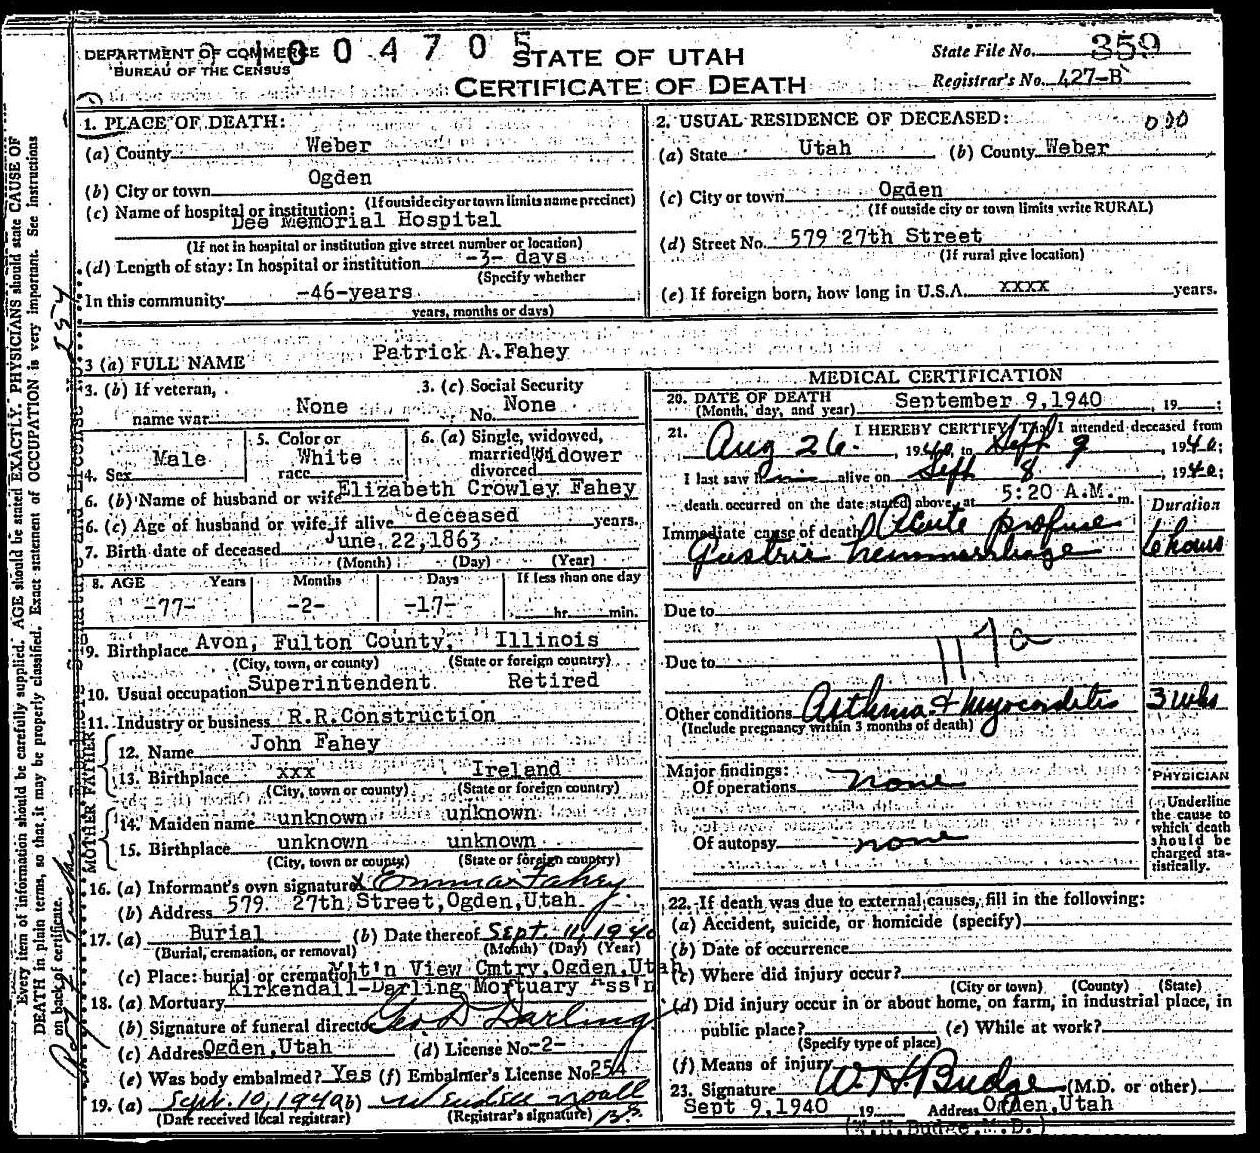 DEPARTMENT OF COMMERCE
BUREAU OF THE CENSUS
1004705
STATE OF UTAH
CERTIFICATE OF DEATH
State File No. 359
Registrar's No. 427-B
1. PLACE OF DEATH:
(a) County Weber
(b) City or town Ogden
(If outside city or town limits name precinct)
(c) Name of hospital or institution:
Dee Memorial Hospital
(If not in hospital or institution give street number or location)
(d) Length of stay: In hospital or institution -3- days
(Specify whether
In this community -46-years
years, months or days)
2. USUAL RESIDENCE OF DECEASED:
(a) State Utah (b) County Weber
(c) City or town Ogden
(If outside city or town limits write RURAL)
(d) Street No. 579 27th Street
(If rural give location)
(e) If foreign born, how long in U.S.A. xxxx years.
3 (a) FULL NAME Patrick A.Fahey
3. (b) If veteran,
name war None
3. (c) Social Security
No. None
4. Sex Male
5. Color or
race White
6. (a) Single, widowed,
married
divorced Widower
6. (b) Name of husband or wife Elizabeth Crowley Fahey
6. (c) Age of husband or wife if alive deceased years.
7. Birth date of deceased June,22,1863
(Month) (Day) (Year)
8. AGE Years Months Days If less than one day
-77- -2- -17- hr. min.
9. Birthplace Avon, Fulton County, Illinois
(City, town, or county) (State or foreign country)
10. Usual occupation Superintendent Retired
11. Industry or business R.R.Construction
FATHER
12. Name John Fahey
13. Birthplace xxx Ireland
(City, town or county) (State or foreign country)
MOTHER
14. Maiden name unknown unknown
15. Birthplace unknown unknown
(City, town or county) (State or foreign country)
16. (a) Informant's own signature x Emma Fahey
(b) Address 579 27th Street,Ogden,Utah
17. (a) Burial (b) Date thereof Sept. 11, 1940
(Burial, cremation, or removal) (Month) (Day) (Year)
(c) Place: burial or cremation Mt'n View Cmtry,Ogden,Utah
18. (a) Mortuary Kirkendall-Darling Mortuary Ass'n
(b) Signature of funeral director Geo D Darling
(c) Address Ogden,Utah (d) License No. -2-
(e) Was body embalmed? Yes (f) Embalmer's License No. 254
19. (a) Sept. 10, 1940 (b)
(Date received local registrar) (Registrar's signature)
MEDICAL CERTIFICATION
20. DATE OF DEATH
(Month, day, and year) September 9,1940, 19 ;
21. I HEREBY CERTIFY, That I attended deceased from
Aug 26, 1940, to Sept 9, 1940;
I last saw him alive on Sept 8, 1940;
death occurred on the date stated above, at 5:20 A.M. m.
Duration
Immediate cause of death Acute profuse
Gastric hemmorrhage 6 hours
Due to
Due to 117a
Other conditions Asthma & Myocarditis 3 wks
(Include pregnancy within 3 months of death)
Major findings:
Of operations none
Of autopsy none
PHYSICIAN
Underline
the cause to
which death
should be
charged sta-
tistically.
22. If death was due to external causes, fill in the following:
(a) Accident, suicide, or homicide (specify)
(b) Date of occurrence
(c) Where did injury occur?
(City or town) (County) (State)
(d) Did injury occur in or about home, on farm, in industrial place, in
public place? (e) While at work?
(Specify type of place)
(f) Means of injury
23. Signature W. H. Budge (M.D. or other)
Sept 9,1940 19 Address Ogden,Utah
(W.H.Budge,M.D.)
Every item of information should be carefully supplied. AGE should be stated EXACTLY. PHYSICIANS should state CAUSE OF
DEATH in plain terms, so that it may be properly classified. Exact statement of OCCUPATION is very important. See instructions
on back of certificate.